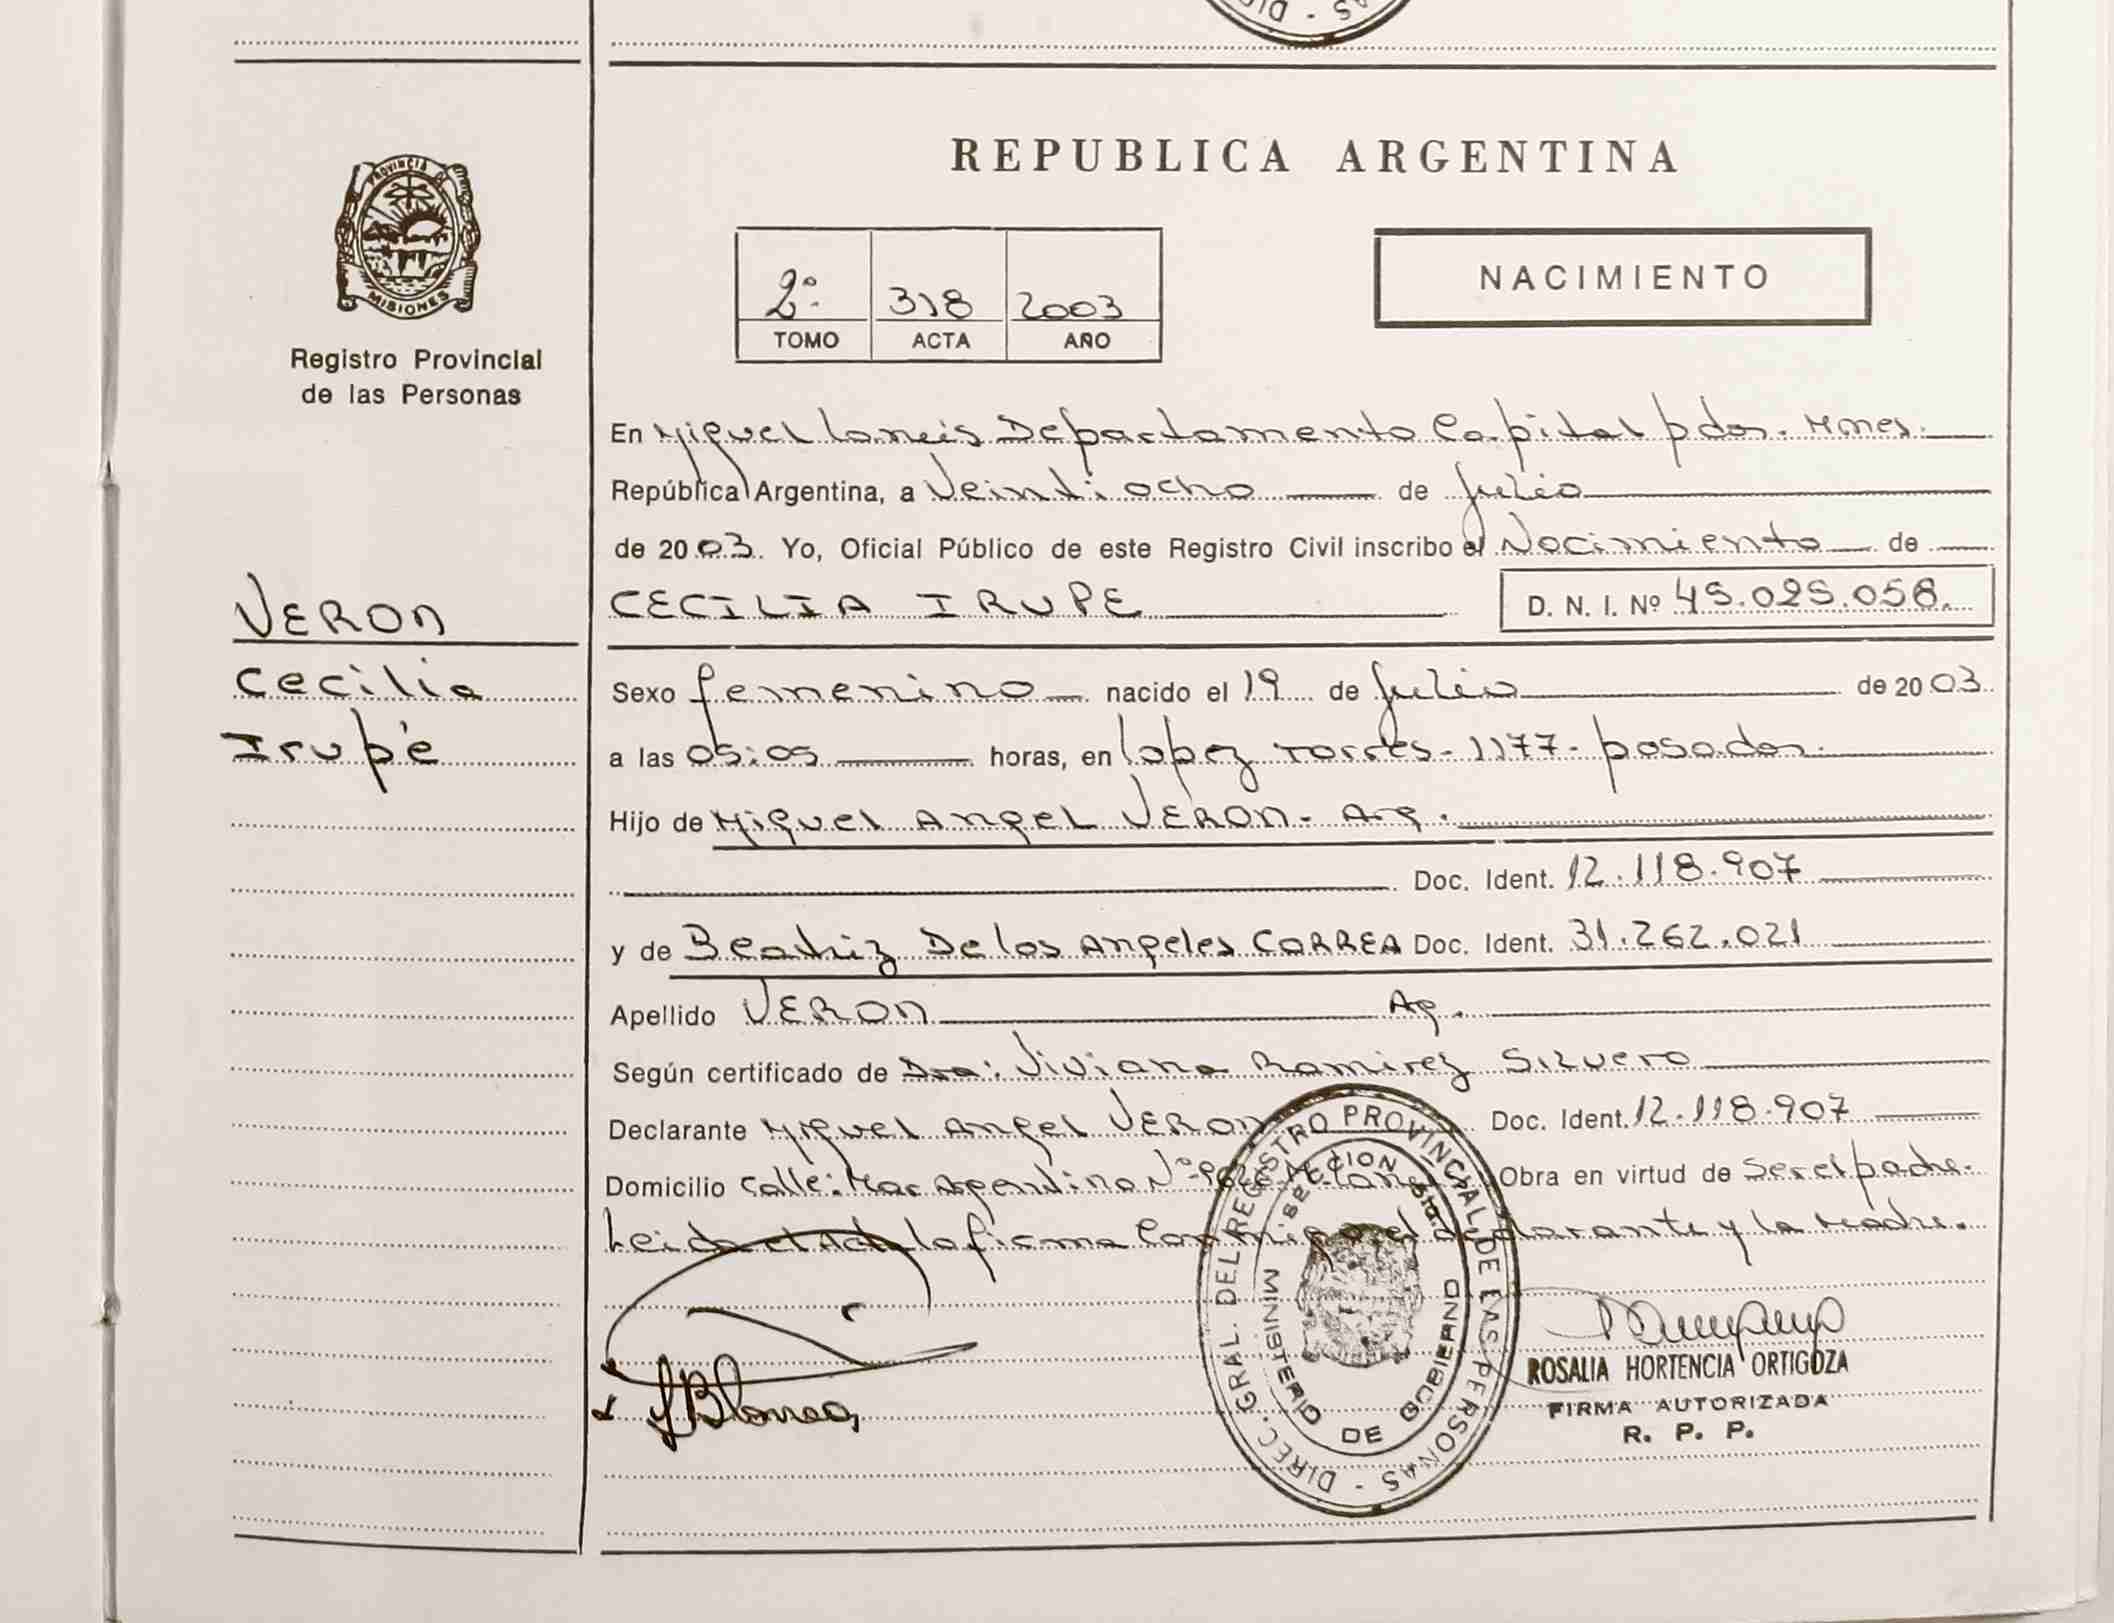 REPUBLICA ARGENTINA
PROVINCIA DE MISIONES
Registro Provincial
de las Personas
2º 318 2003
TOMO ACTA AÑO
NACIMIENTO
En Miguel Lanús Departamento Capital pdas. Mnes.
República Argentina, a Veintiocho de Julio
de 2003. Yo, Oficial Público de este Registro Civil inscribo el Nacimiento de
CECILIA IRUPE D. N. I. Nº 45.025.058.
VERON
Cecilia
Irupé
Sexo femenino nacido el 19 de Julio de 2003
a las 05:05 horas, en Lopez Torres - 1177 - posadas.
Hijo de Miguel Angel VERON - Arg.
Doc. Ident. 12.118.907
y de Beatriz De los Angeles CORREA Doc. Ident. 31.262.021
Apellido VERON Arg.
Según certificado de Dra: Viviana Ramirez Silvero
Declarante Miguel Angel VERON Doc. Ident. 12.118.907
Domicilio Calle: Mar Argentino Nº Obra en virtud de Ser el padre.
Leida el Acta la firma Conmigo el declarante y la Madre.
DIREC. GRAL. DEL REGISTRO PROVINCIAL DE LAS PERSONAS
MINISTERIO DE GOBIERNO
ROSALIA HORTENCIA ORTIGOZA
FIRMA AUTORIZADA
R. P. P.